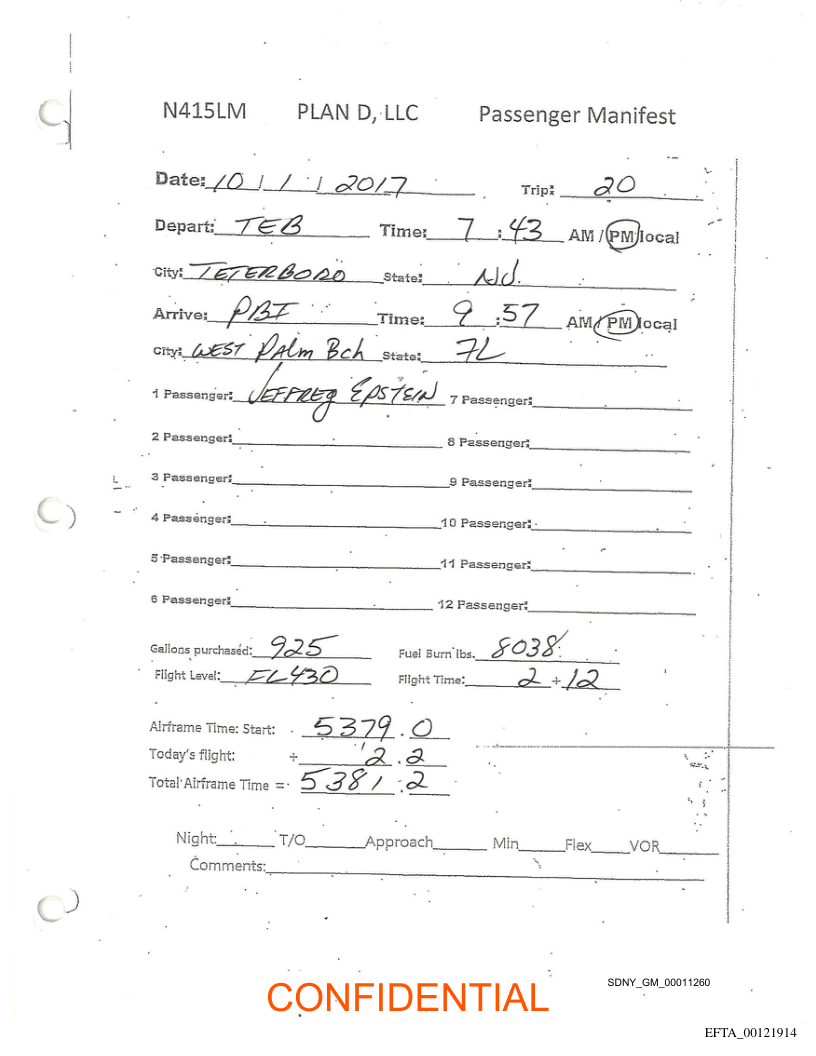 N415LM PLAN D, LLC Passenger Manifest
Date: 10 / 1 / 2017 Trip: 20
Depart: TEB Time: 7 : 43 AM / PM local
City: TETERBORO State: NJ.
Arrive: PBI Time: 9 : 57 AM / PM local
City: WEST PAlm Bch State: FL
1 Passenger: JEFFREY EPSTEIN 7 Passenger:
2 Passenger: 8 Passenger:
3 Passenger: 9 Passenger:
4 Passenger: 10 Passenger:
5 Passenger: 11 Passenger:
6 Passenger: 12 Passenger:
Gallons purchased: 925 Fuel Burn lbs. 8038
Flight Level: FL430 Flight Time: 2 + 12
Airframe Time: Start: 5379.0
Today's flight: + 2.2
Total Airframe Time = 5381.2
Night: T/O Approach Min Flex VOR
Comments:
SDNY_GM_00011260
CONFIDENTIAL
EFTA_00121914